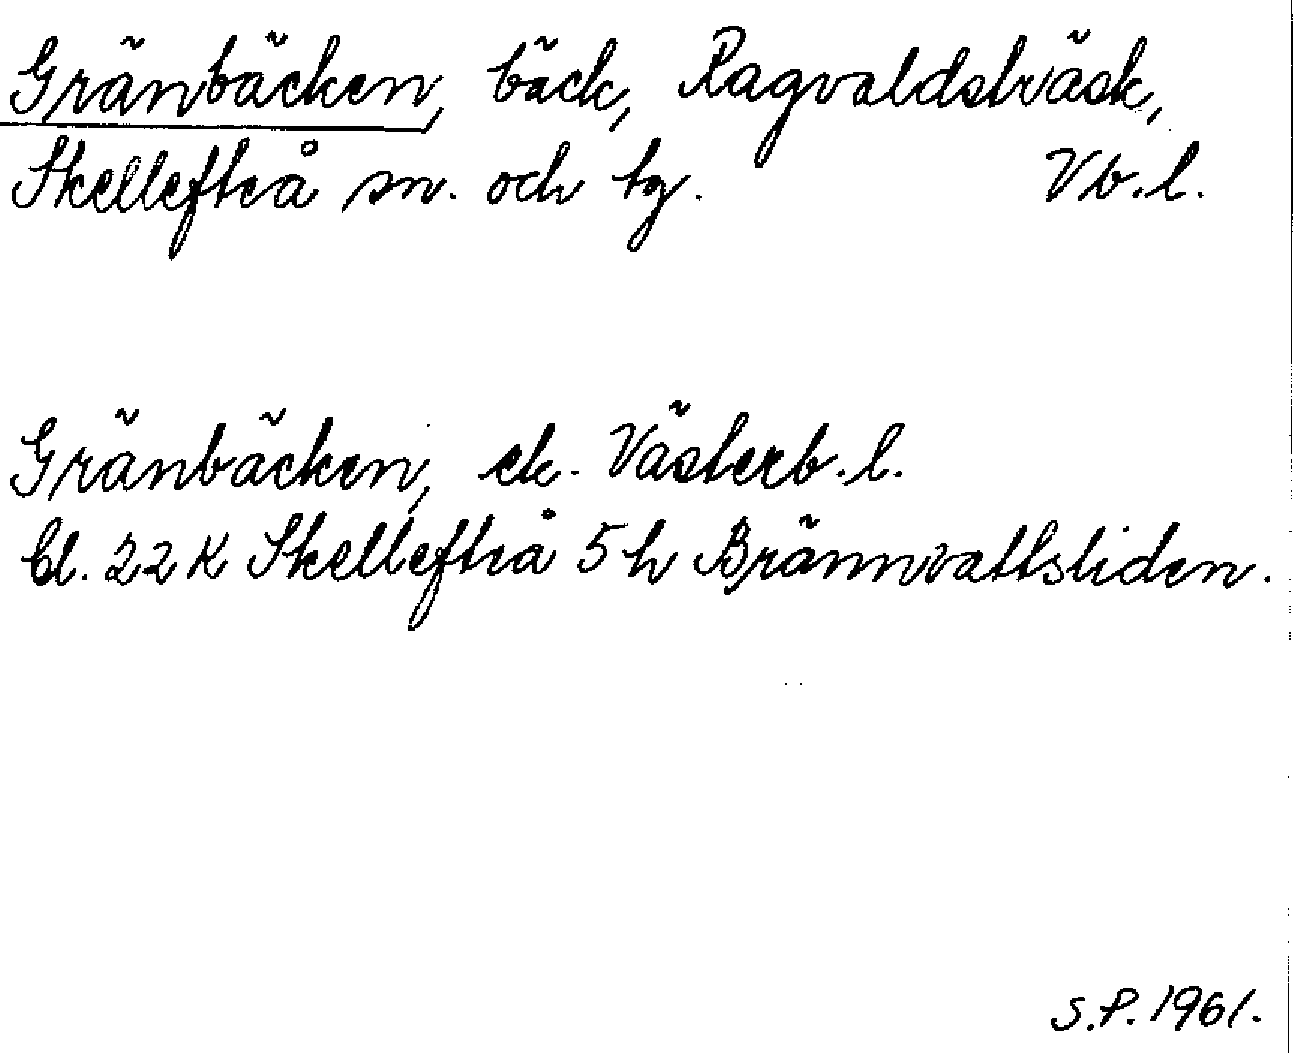 Gränbäcken, bäck, Ragvaldsträsk,
Skellefteå sn. och tg. Vb.l.
Gränbäcken, ek. Västerb.l.
bl. 22 K Skellefteå 5 h Brännvattsliden.
S.P. 1961.